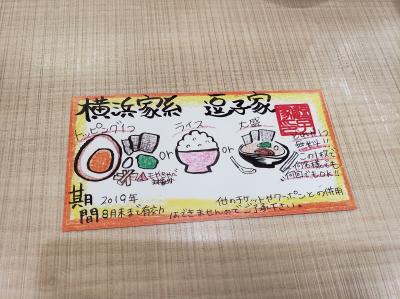 横浜家系 逗子家
トッピング1つ
or
ライス
or
大盛
無料!!
この1枚で
何名様でも
何回でもOK!!
期間
2019年
8月末まで有効
他のチケットやクーポンとの併用
はできませんのでご了承下さい。